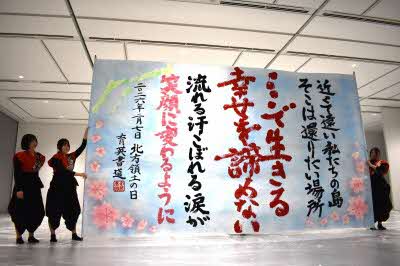 近くて遠い私たちの島
そこは還りたい場所
ここで生きる
幸せを諦めない
流れる汗こぼれる涙が
笑顔に変わるように
二〇二六年二月七日 北方領土の日
育英書道